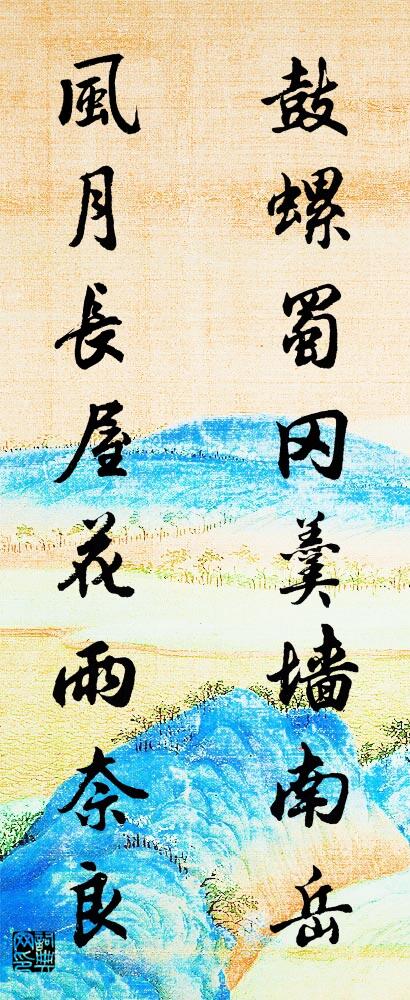 鼓螺蜀冈羹墙南岳
風月長屋花雨奈良
詞典网印